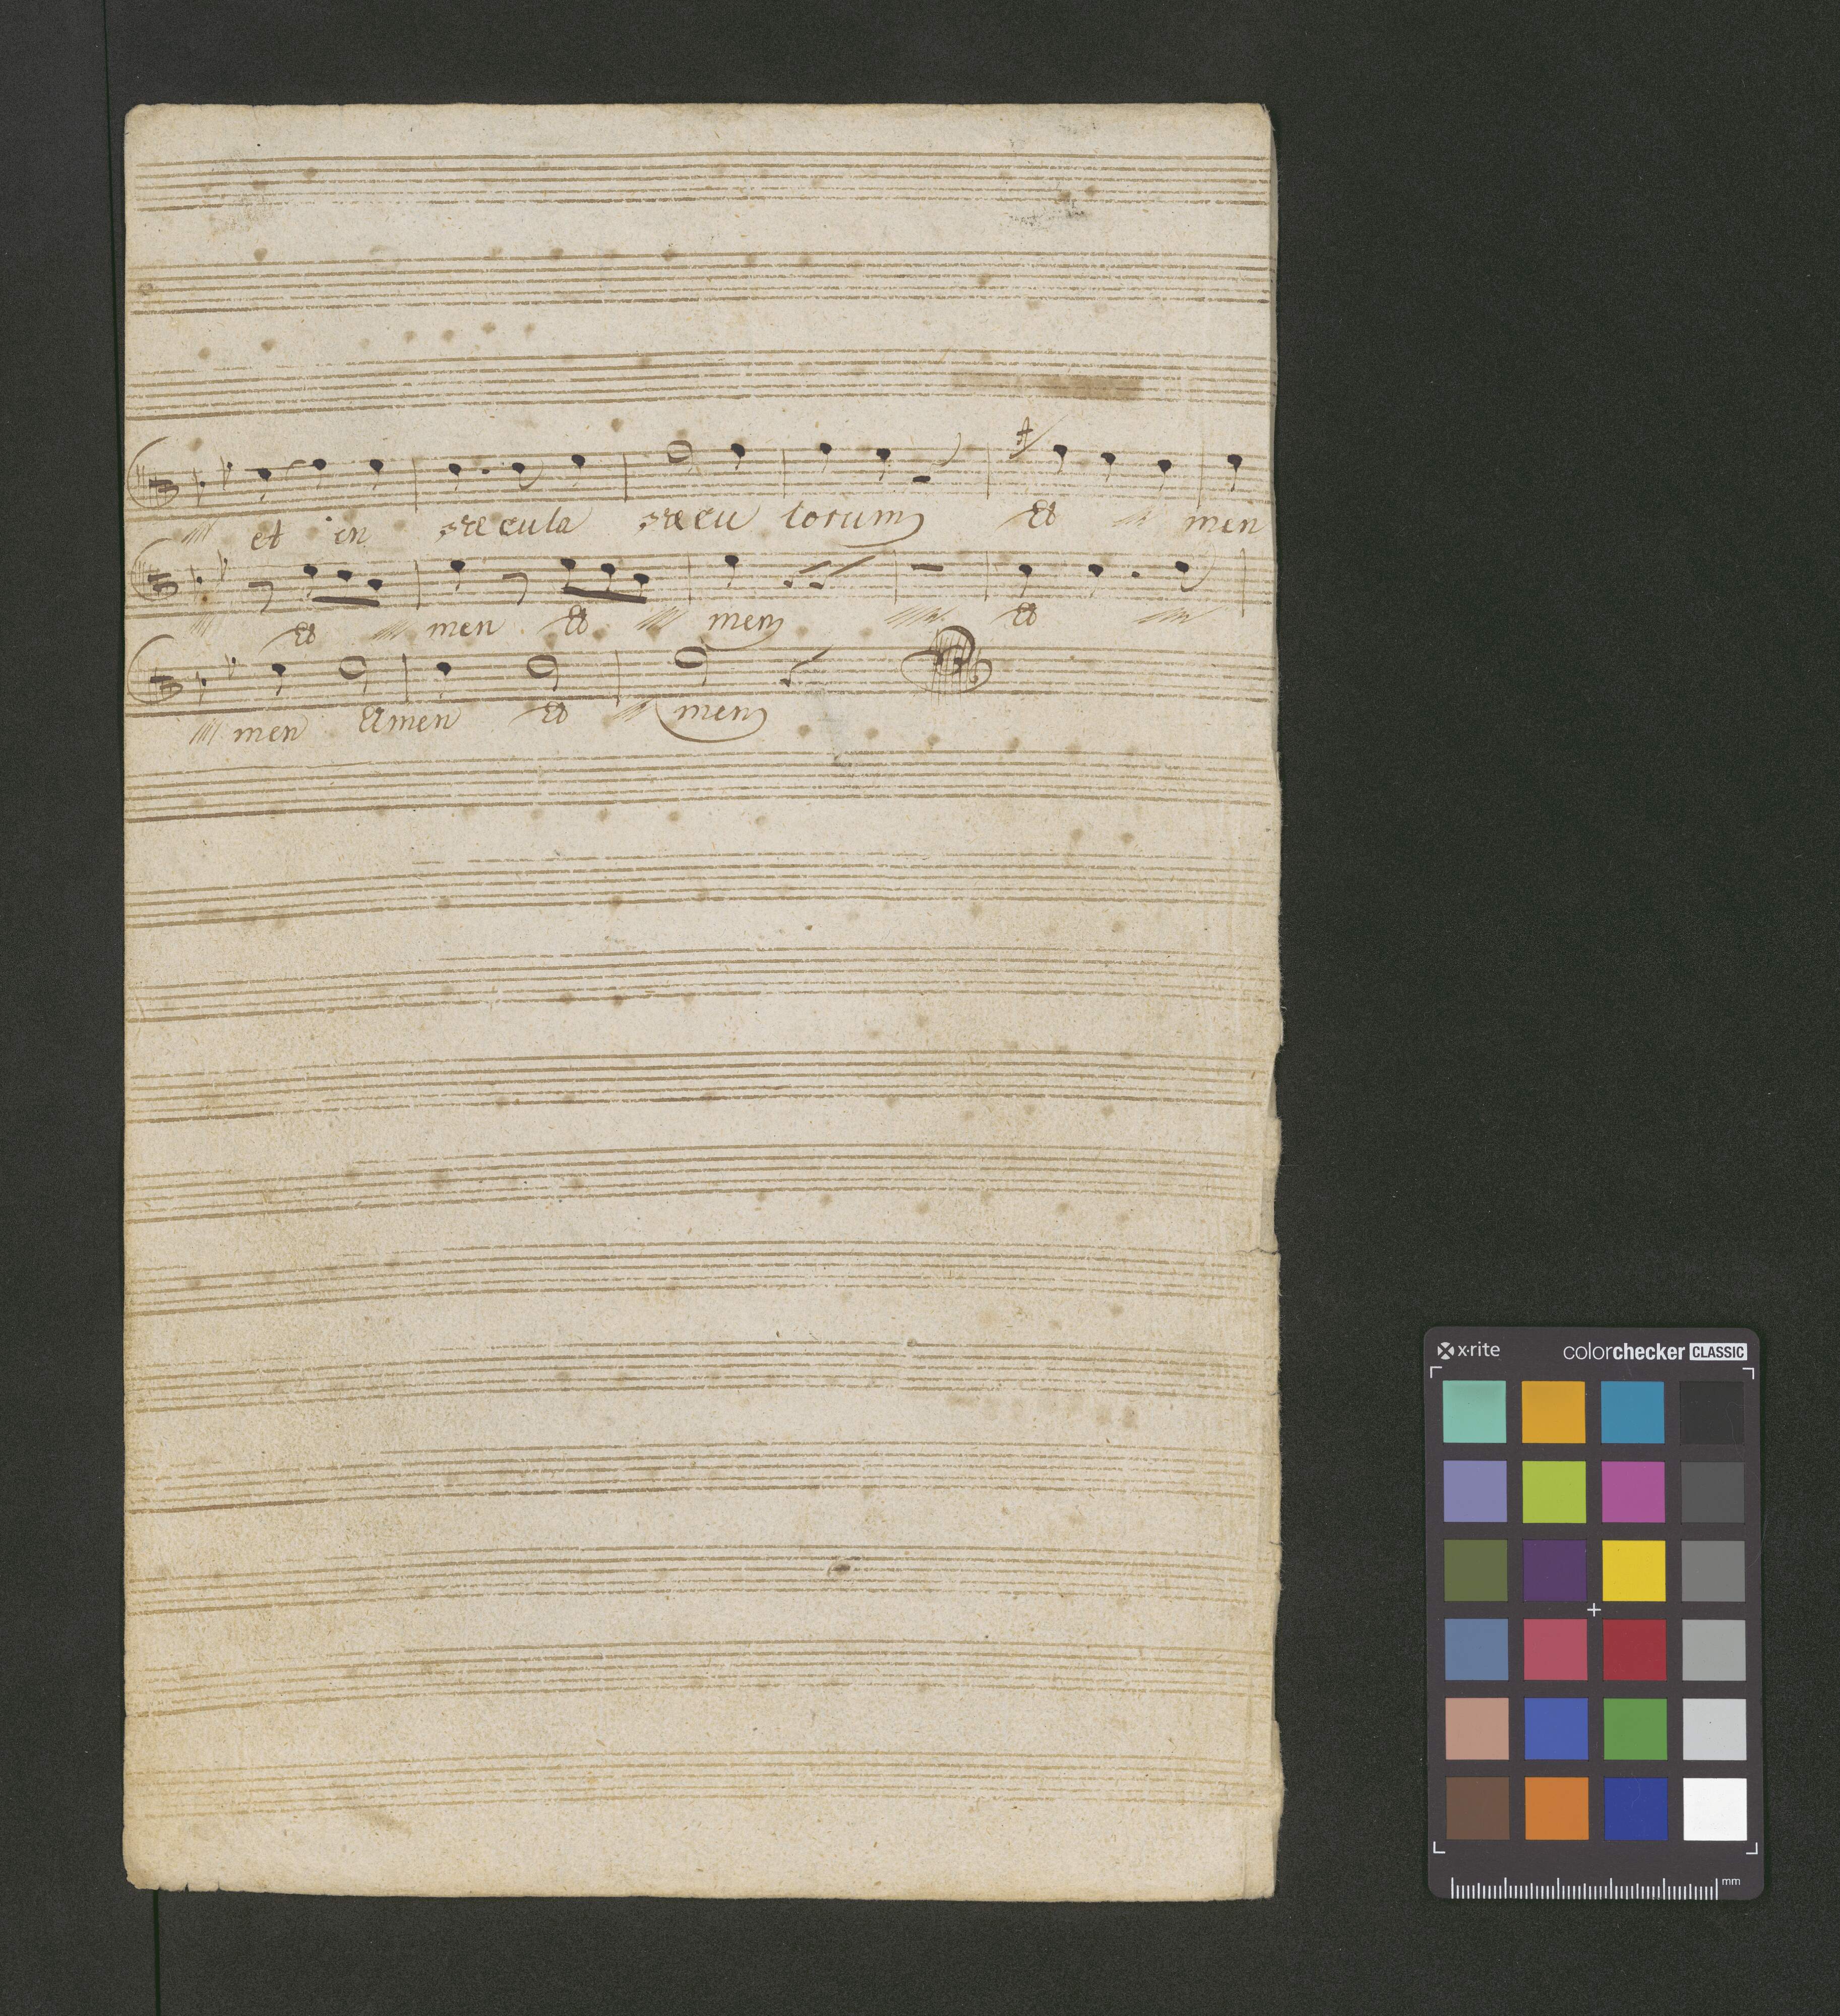 et in sæcula sæcu lorum A men
A men A men A
men Amen A men
x·rite colorchecker CLASSIC
mm